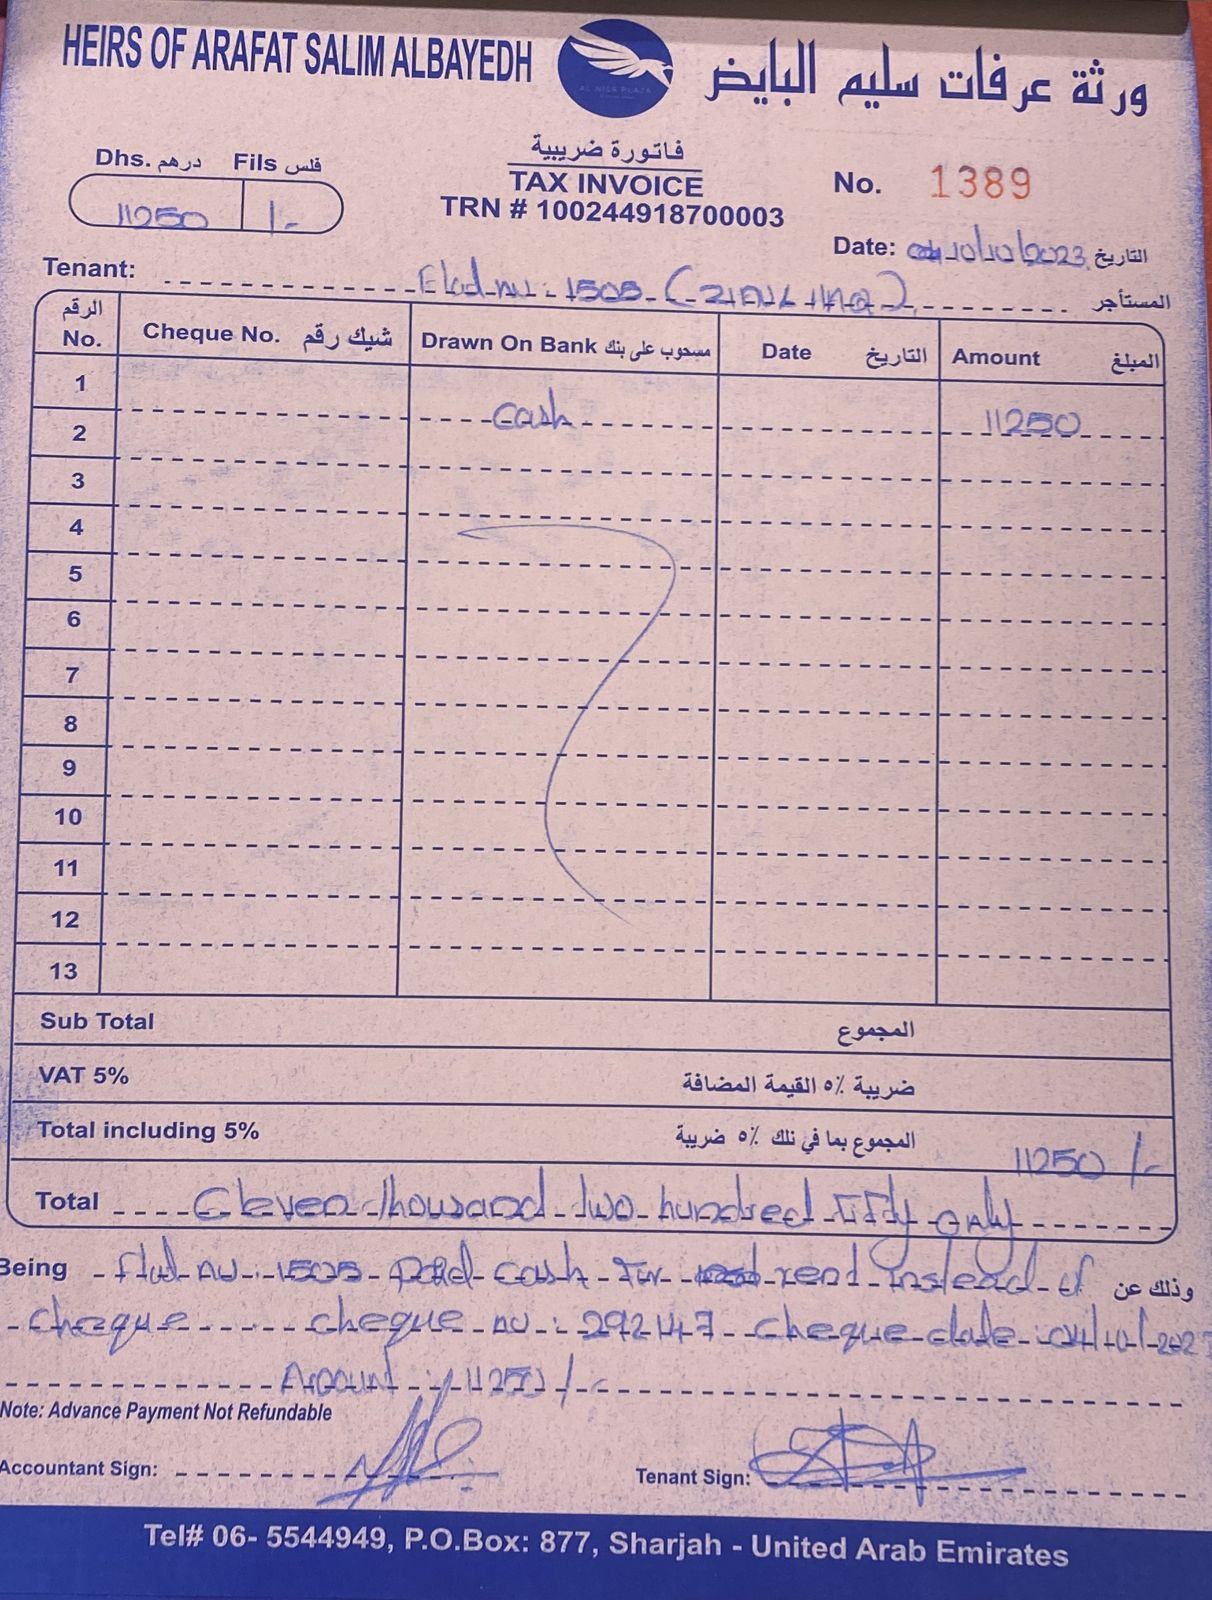 HEIRS OF ARAFAT SALIM ALBAYEDH
ورثة عرفات سليم البايض
AL NISR PLAZA
Dhs. درهم Fils فلس
11250 /-
فاتورة ضريبية
TAX INVOICE
TRN # 100244918700003
No. 1389
Date: 10/10/2023 التاريخ
Tenant: Flad nu: 1505 ( HAQ) المستأجر
الرقم No. Cheque No. شيك رقم Drawn On Bank مسحوب على بنك Date التاريخ Amount المبلغ
1
2 cash 11250
3
4
5
6
7
8
9
10
11
12
13
Sub Total المجموع
VAT 5% ضريبة ٥٪ القيمة المضافة
Total including 5% المجموع بما في تلك ٥٪ ضريبة 11250 /-
Total Eleven thousand two hundred fifty only
Being Flat nu: 1505 paid cash for rent instead of وذلك عن
cheque cheque nu: 292147 cheque date: 04/10/202
Amount: 11250/-
Note: Advance Payment Not Refundable
Accountant Sign:
Tenant Sign:
Tel# 06- 5544949, P.O.Box: 877, Sharjah - United Arab Emirates